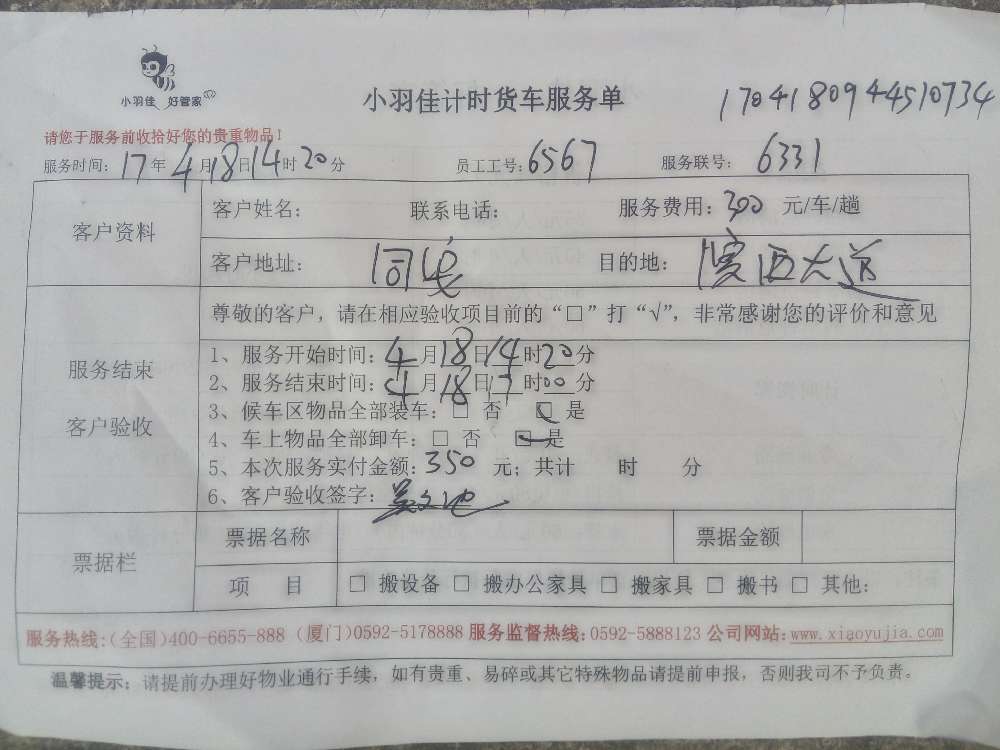 小羽佳 好管家
小羽佳计时货车服务单
17041809444510734
请您于服务前收拾好您的贵重物品！
服务时间：17年4月18日14时20分 员工工号：6567 服务联号：6331
客户资料
客户姓名： 联系电话： 服务费用：300 元/车/趟
客户地址：同安 目的地：厦西大道
服务结束
客户验收
尊敬的客户，请在相应验收项目前的“□”打“√”，非常感谢您的评价和意见
1、服务开始时间：4月18日14时20分
2、服务结束时间：4月18日17时00分
3、候车区物品全部装车：□ 否 ☑ 是
4、车上物品全部卸车：□ 否 ☑ 是
5、本次服务实付金额：350 元；共计 时 分
6、客户验收签字：
票据栏
票据名称 票据金额
项 目 □ 搬设备 □ 搬办公家具 □ 搬家具 □ 搬书 □ 其他：
服务热线：(全国)400-6655-888 (厦门)0592-5178888 服务监督热线：0592-5888123 公司网站：www.xiaoyujia.com
温馨提示：请提前办理好物业通行手续，如有贵重、易碎或其它特殊物品请提前申报，否则我司不予负责。